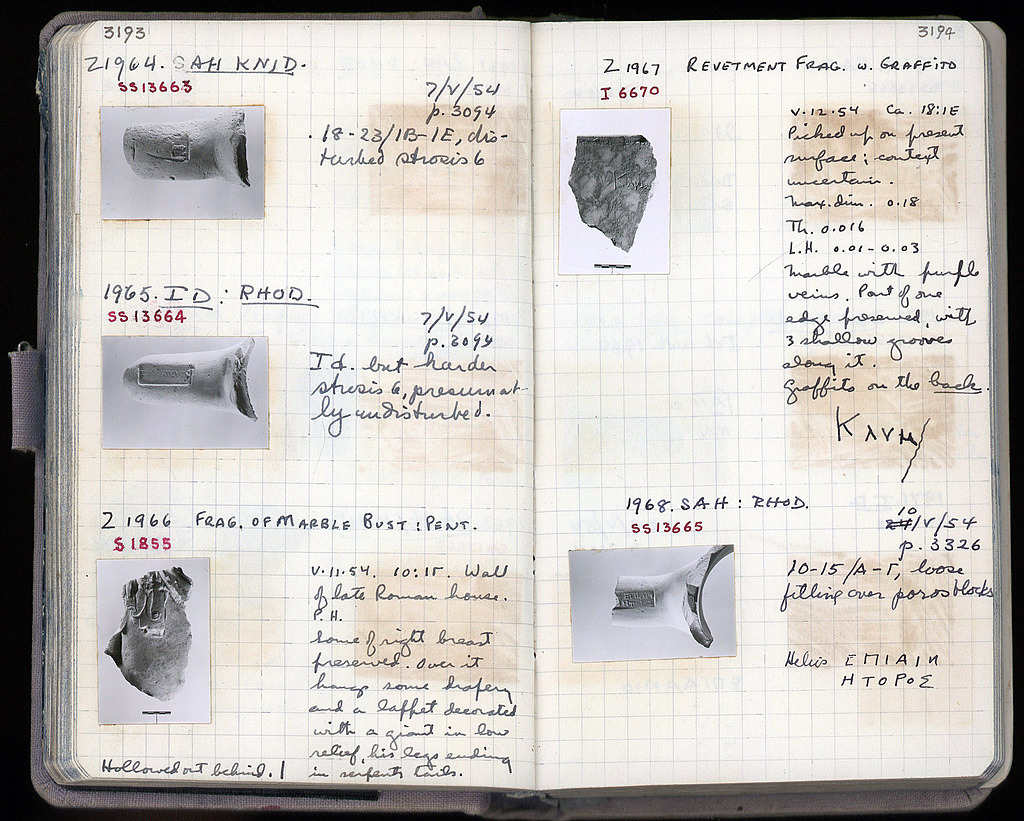 3193
Z1964. SAH KNID.
SS13663
7/V/54
p. 3094
18-23/IB-IE, dis-
turbed strosis 6
1965. ID: RHOD.
SS 13664
7/V/54
p. 3094
Id. but harder
strosis 6, presumab-
ly undisturbed.
Z 1966 FRAG. OF MARBLE BUST: PENT.
S 1855
V.11.54. 10:ΙΓ. Wall
of late Roman house.
P.H.
Some of right breast
preserved. Over it
hangs some drapery
and a lappet decorated
with a giant in low
relief, his legs ending
in serpents tails.
Hollowed out behind.
3194
Z 1967 REVETMENT FRAG. W. GRAFFITO
I 6670
V.12.54 Ca. 18:ΙΕ
Picked up on present
surface; context
uncertain.
Max. dim. 0.18
Th. 0.016
L.H. 0.01-0.03
Marble with purple
veins. Part of one
edge preserved, with
3 shallow grooves
along it.
Graffito on the back.
ΚΛΥΜ
1968. SAH: RHOD.
SS13665
10
/V/54
p. 3326
10-15/Α-Γ, loose
filling over poros blocks
Helios ΕΠΙΑΙΝ
ΗΤΟΡΟΣ